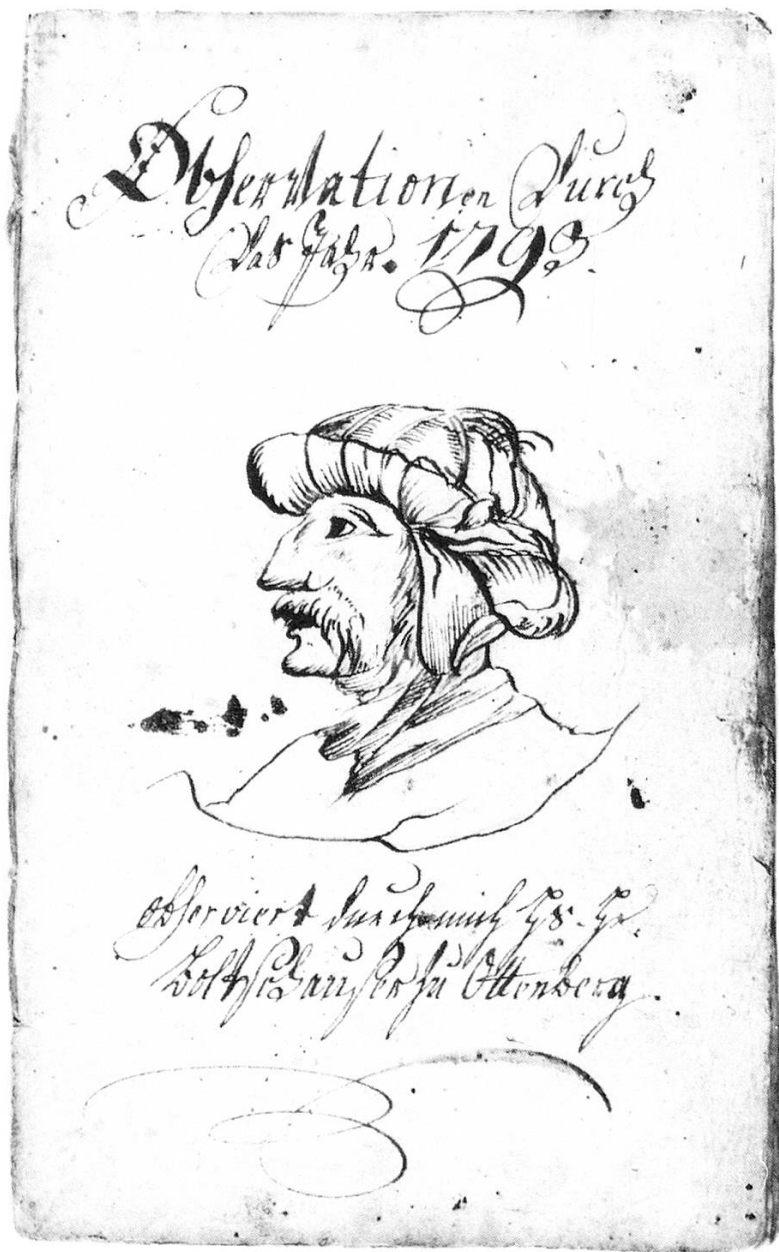 Observationen Durch
Das Jahr. 1793.
observiert durch mich Hs. Hr.
Boltzhauser zu Ottenberg.